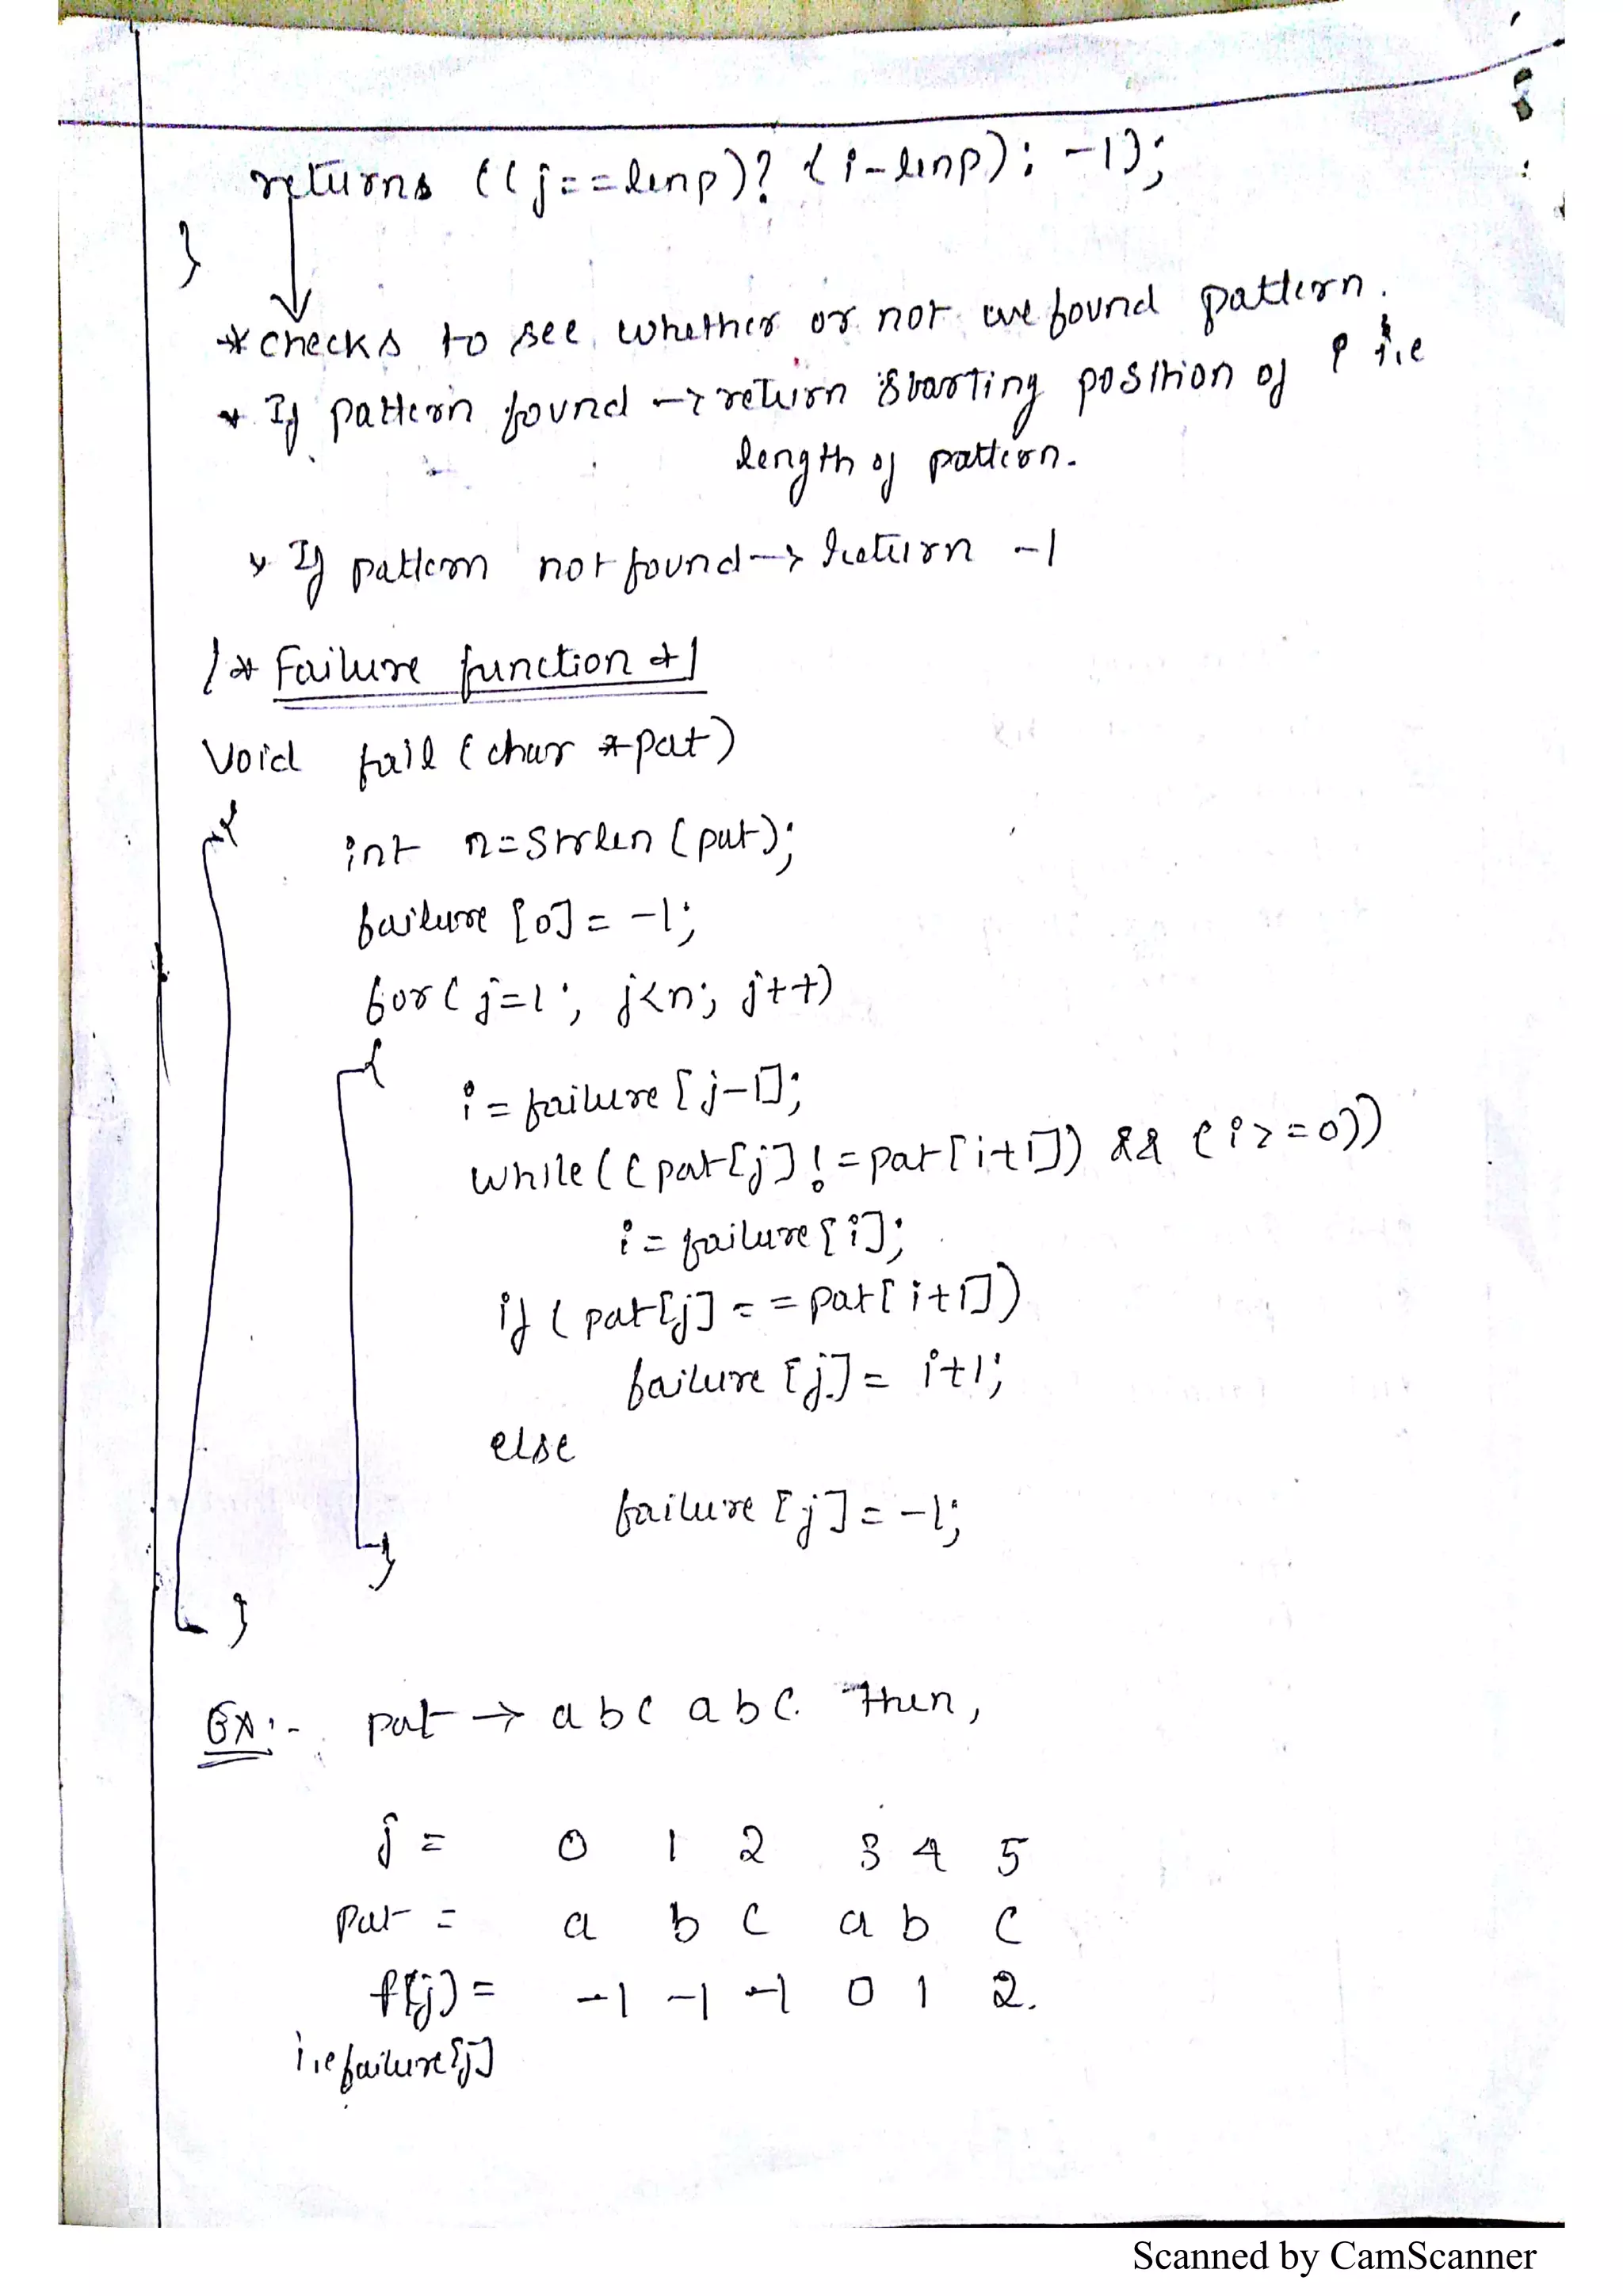 returns ((j==lenp)? (i-lenp): -1);
}
* checks to see whether or not we found pattern.
* If pattern found → return starting position of P i.e
length of pattern.
* If pattern not found → return -1
/* Failure function */
Void fail (char *pat)
{
int n=Strlen (pat);
failure [0] = -1;
for( j=1; j<n; j++)
{
i = failure [j-1];
while (( pat[j] != pat[i+1]) && (i>=0))
i = failure [i];
if ( pat[j] == pat[i+1])
failure [j] = i+1;
else
failure [j] = -1;
}
}
EX:- pat → a b c a b c. Then,
j = 0 1 2 3 4 5
pat = a b c a b c
f(j) = -1 -1 -1 0 1 2.
i.e failure[j]
Scanned by CamScanner